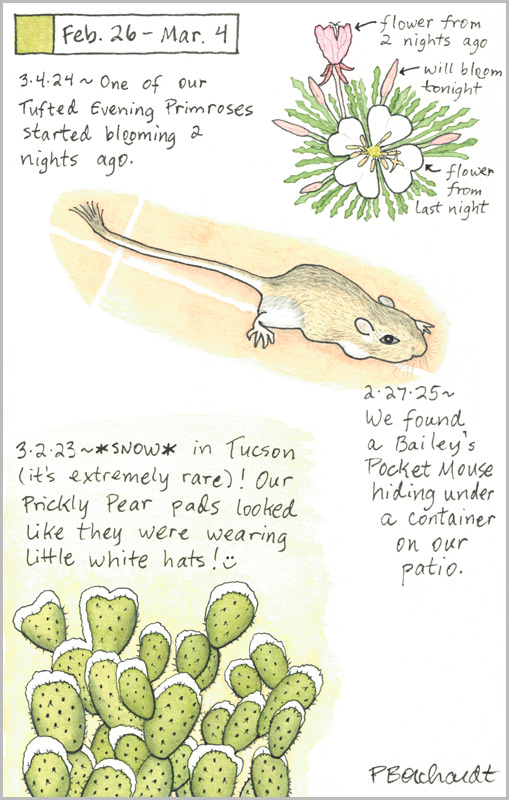 Feb. 26 - Mar. 4
3.4.24 ~ One of our
Tufted Evening Primroses
started blooming 2
nights ago.
flower from
2 nights ago
will bloom
tonight
flower
from
last night
2.27.25 ~
We found
a Bailey's
Pocket Mouse
hiding under
a container
on our
patio.
3.2.23 ~ *SNOW* in Tucson
(it's extremely rare)! Our
Prickly Pear pads looked
like they were wearing
little white hats! :)
PBorchardt